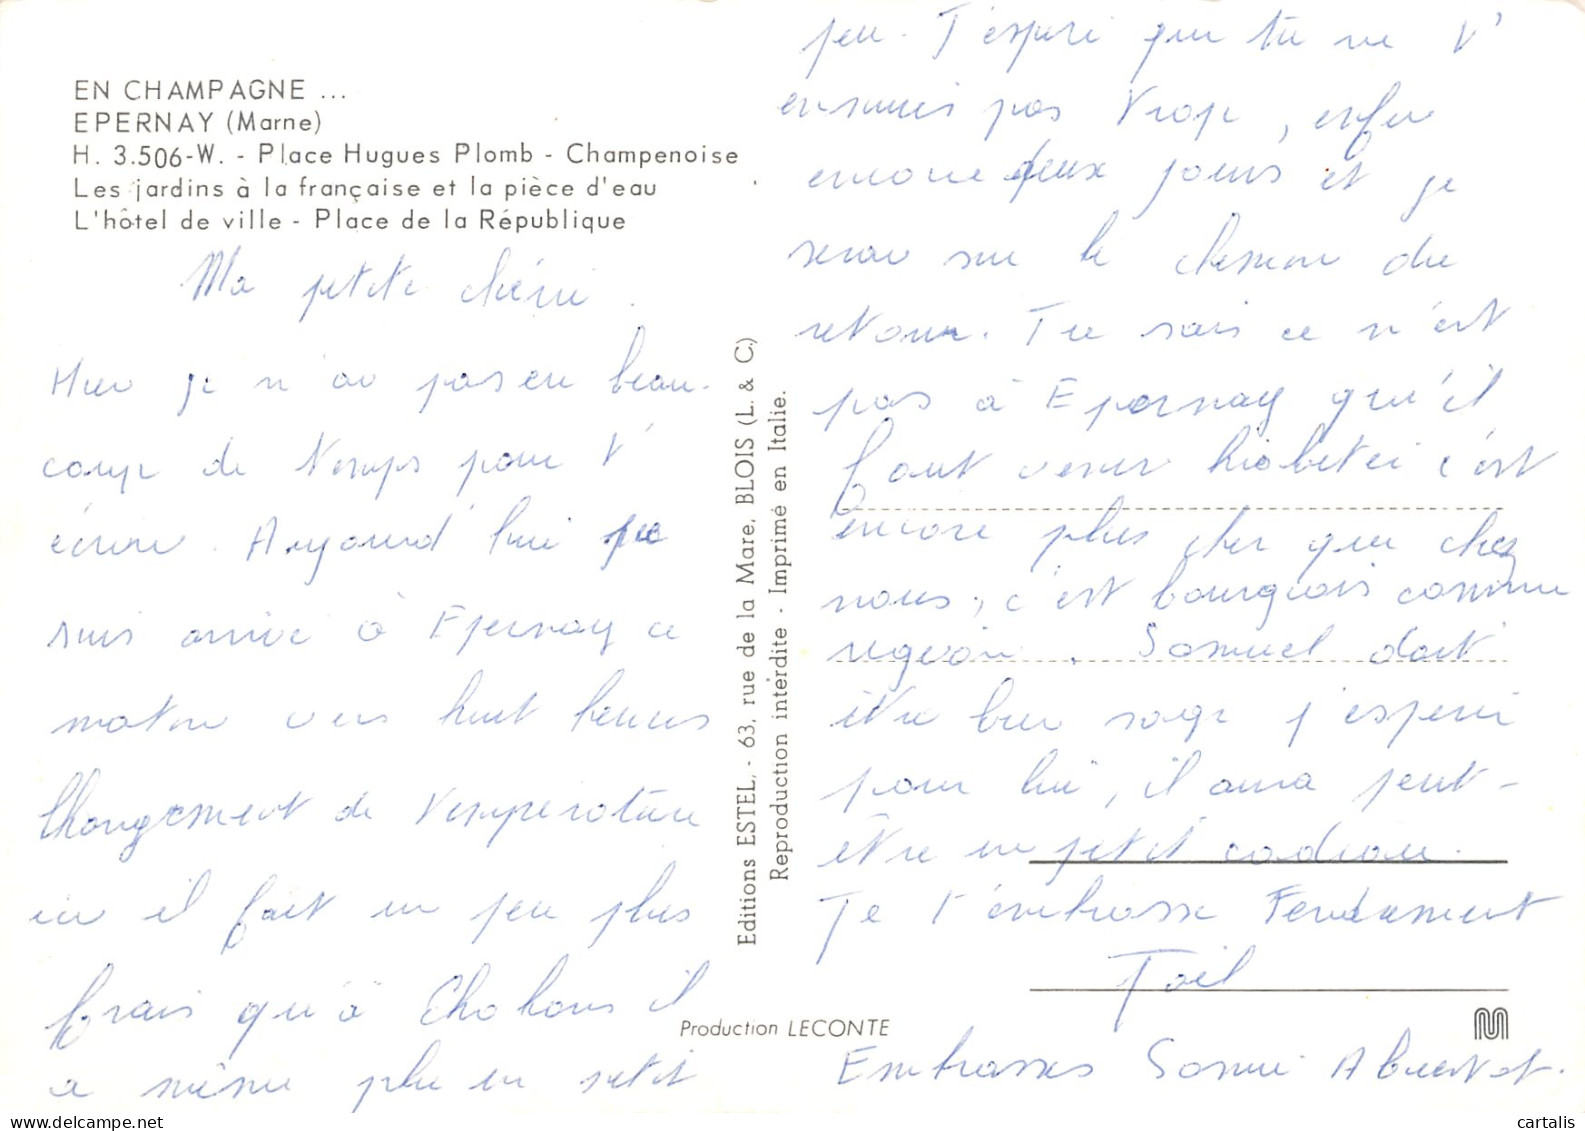 EN CHAMPAGNE ...
EPERNAY (Marne)
H. 3.506-W. - Place Hugues Plomb - Champenoise
Les jardins à la française et la pièce d'eau
L'hôtel de ville - Place de la République
Ma petite chérie.
Hier je n'ai pas eu beau-
coup de temps pour t'
écrire. Aujourd'hui je
suis arrivé à Epernay ce
matin vers huit heures
Changement de température
ici il fait un peu plus
frais qu'à Chalons il
a même plu un petit
peu. J'espère que tu ne t'
ennuies pas trop, enfin
encore deux jours et je
serai sur le chemin du
retour. Tu sais ce n'est
pas à Epernay qu'il
faut venir habiter c'est
encore plus cher que chez
nous, c'est bourgeois comme
région. Samuel doit
être bien sage j'espère
pour lui, il aura peut-
être un petit cadeau.
Je t'embrasse Tendrement
Joël
Embrasses Samuel
Editions ESTEL, - 63, rue de la Mare, BLOIS (L. & C.)
Reproduction interdite - Imprimé en Italie.
Production LECONTE
cartalis